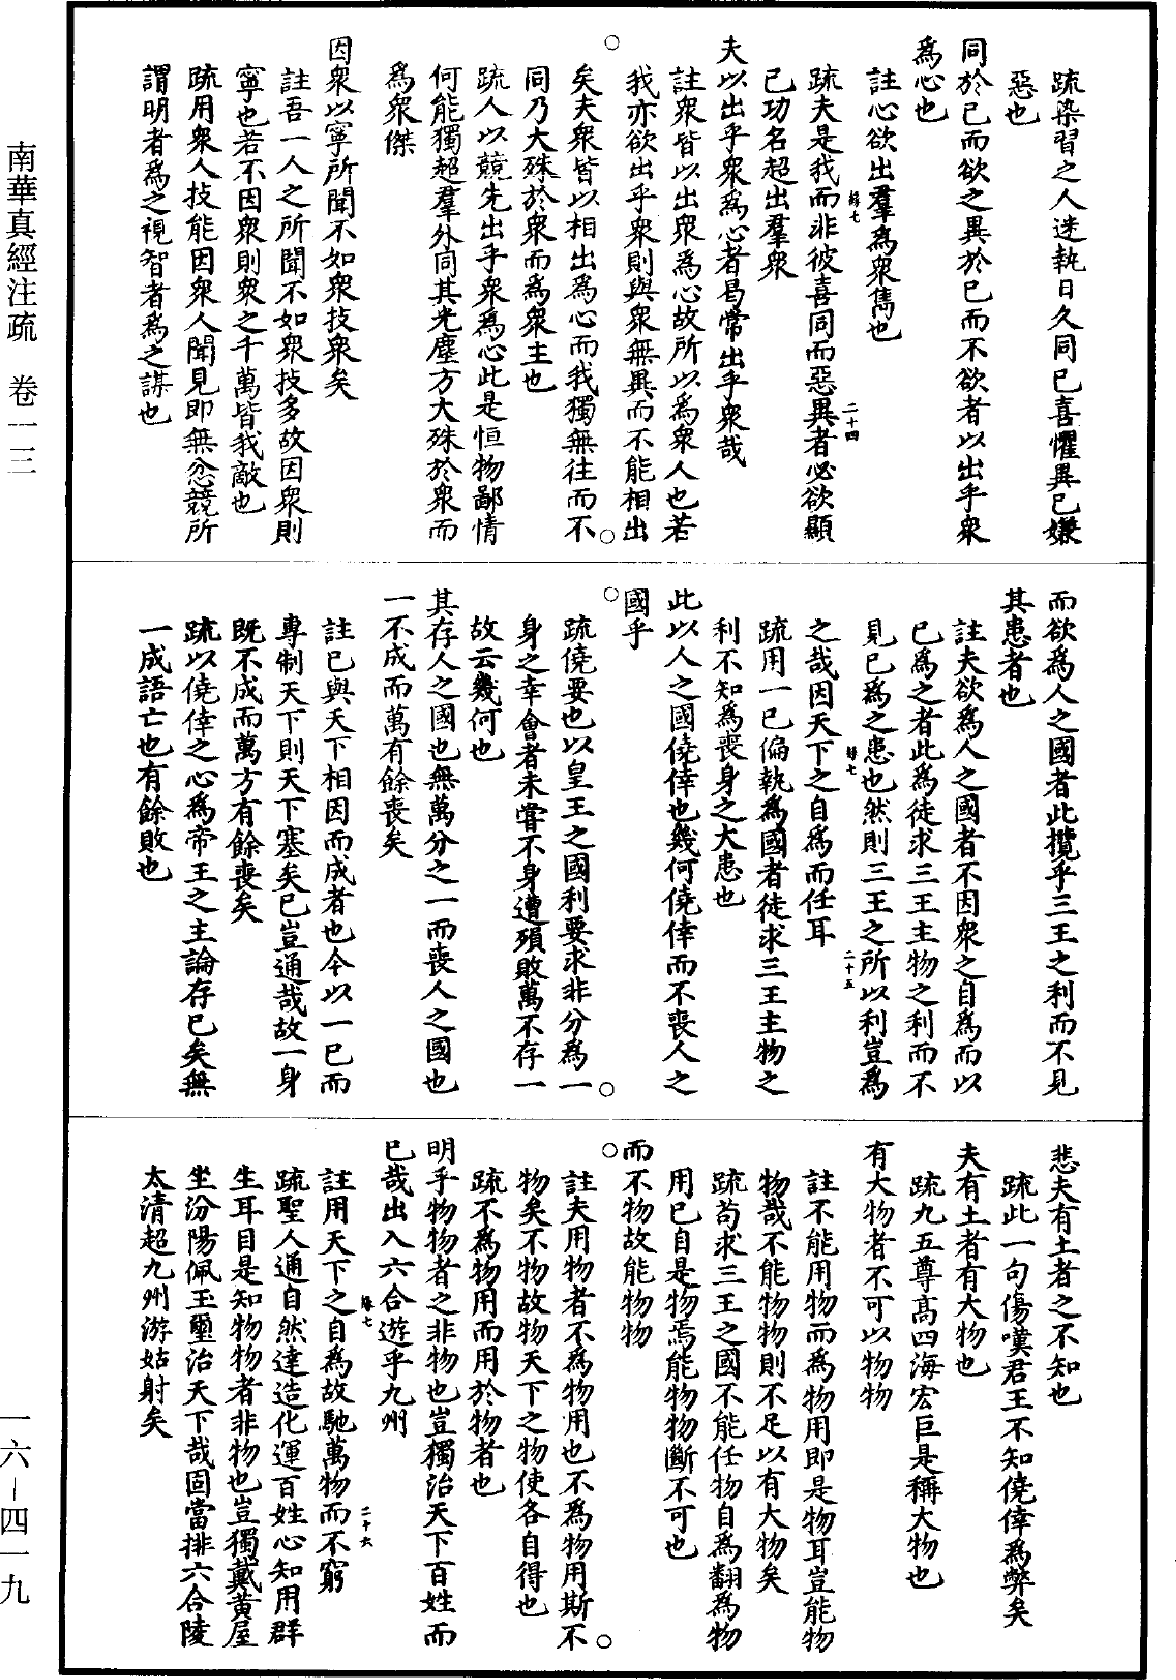 疏染習之人迷執日久同已喜懼異已嫌
惡也
同於已而欲之異於已而不欲者以出乎衆
爲心也
註心欲出羣爲衆雋也
疏夫是我而非彼喜同而惡異者必欲顯
已功名超出羣衆
夫以出乎衆爲心者曷常出乎衆哉
註衆皆以出衆爲心故所以爲衆人也若
我亦欲出乎衆則與衆無異而不能相出
矣夫衆皆以相出爲心而我獨無往而不
同乃大殊於衆而爲衆主也
疏人以競先出乎衆爲心此是恒物鄙情
何能獨超羣外同其光塵方大殊於衆而
爲衆傑
因衆以寧所聞不如衆技衆矣
註吾一人之所聞不如衆技多故因衆則
寧也若不因衆則衆之千萬皆我敵也
疏用衆人技能因衆人聞見即無忿競所
謂明者爲之視智者爲之謀也
二十四
而欲爲人之國者此攬乎三王之利而不見
其患者也
註夫欲爲人之國者不因衆之自爲而以
已爲之者此爲徒求三王主物之利而不
見已爲之患也然則三王之所以利豈爲
之哉因天下之自爲而任耳
疏用一已偏執爲國者徒求三王主物之
利不知爲喪身之大患也
此以人之國僥倖也幾何僥倖而不喪人之
國乎
疏僥要也以皇王之國利要求非分爲一
身之幸會者未嘗不身遭殞敗萬不存一
故云幾何也
其存人之國也無萬分之一而喪人之國也
一不成而萬有餘喪矣
註已與天下相因而成者也今以一已而
專制天下則天下塞矣已豈通哉故一身
既不成而萬方有餘喪矣
疏以僥倖之心爲帝王之主論存已矣無
一成語亡也有餘敗也
二十五
悲夫有土者之不知也
疏此一句傷嘆君王不知僥倖爲弊矣
夫有土者有大物也
疏九五尊高四海宏巨是稱大物也
有大物者不可以物物
註不能用物而爲物用即是物耳豈能物
物哉不能物物則不足以有大物矣
疏苟求三王之國不能任物自爲翻爲物
用已自是物焉能物物斷不可也
而不物故能物物
註夫用物者不爲物用也不爲物用斯不
物矣不物故物天下之物使各自得也
疏不爲物用而用於物者也
明乎物物者之非物也豈獨治天下百姓而
已哉出入六合遊乎九州
註用天下之自爲故馳萬物而不窮
疏聖人通自然達造化運百姓心知用群
生耳目是知物物者非物也豈獨戴黄屋
坐汾陽佩玉璽治天下哉固當排六合陵
太清超九州游姑射矣
二十六
南華真經注疏 卷一三
一六－四一九